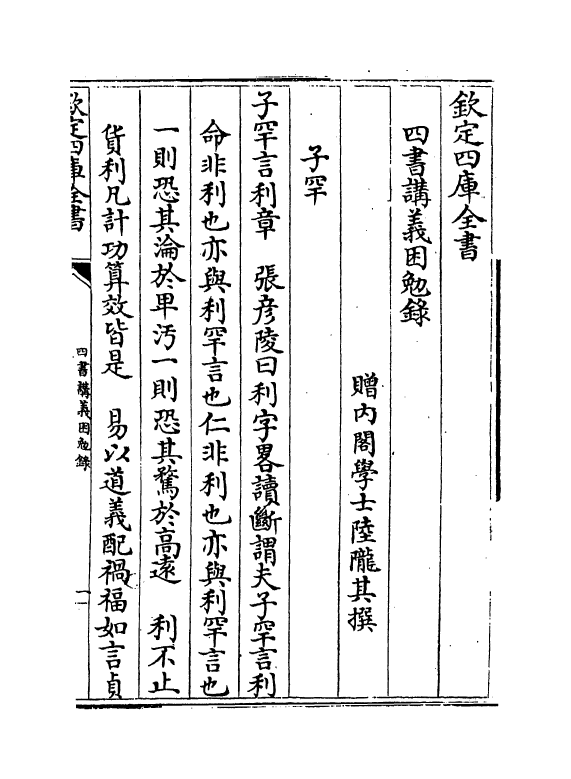 欽定四庫全書
四書講義困勉錄
贈內閣學士陸隴其撰
子罕
子罕言利章　張彥陵曰利字畧讀斷謂夫子罕言利
命非利也亦與利罕言也仁非利也亦與利罕言也
一則恐其淪於卑汚一則恐其騖於高遠　利不止
貨利凡計功算效皆是　易以道義配禍福如言貞
欽定四庫全書
四書講義困勉錄
一